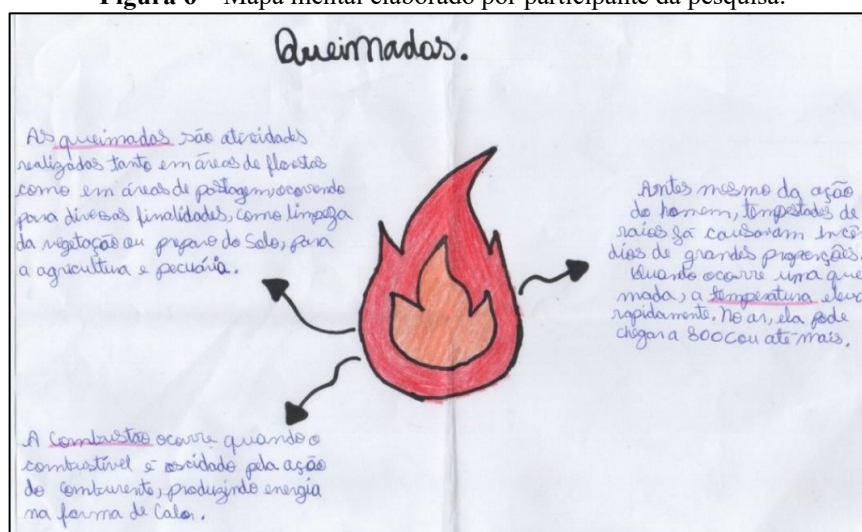 Figura 6 – Mapa mental elaborado por participante da pesquisa.
Queimadas.
As queimadas são atividades
realizadas tanto em áreas de florestas
como em áreas de pastagem, ocorrendo
para diversas finalidades, como limpeza
da vegetação ou preparo do solo, para
a agricultura e pecuária.
Antes mesmo da ação
do homem, tempestades de
raios já causavam incên-
dios de grandes proporções.
Quando ocorre uma quei
mada, a temperatura eleva
rapidamente. No ar, ela pode
chegar a 800C ou até mais.
A combustão ocorre quando o
combustível é oxcidado pela ação
do comburente, produzindo energia
na forma de calor.